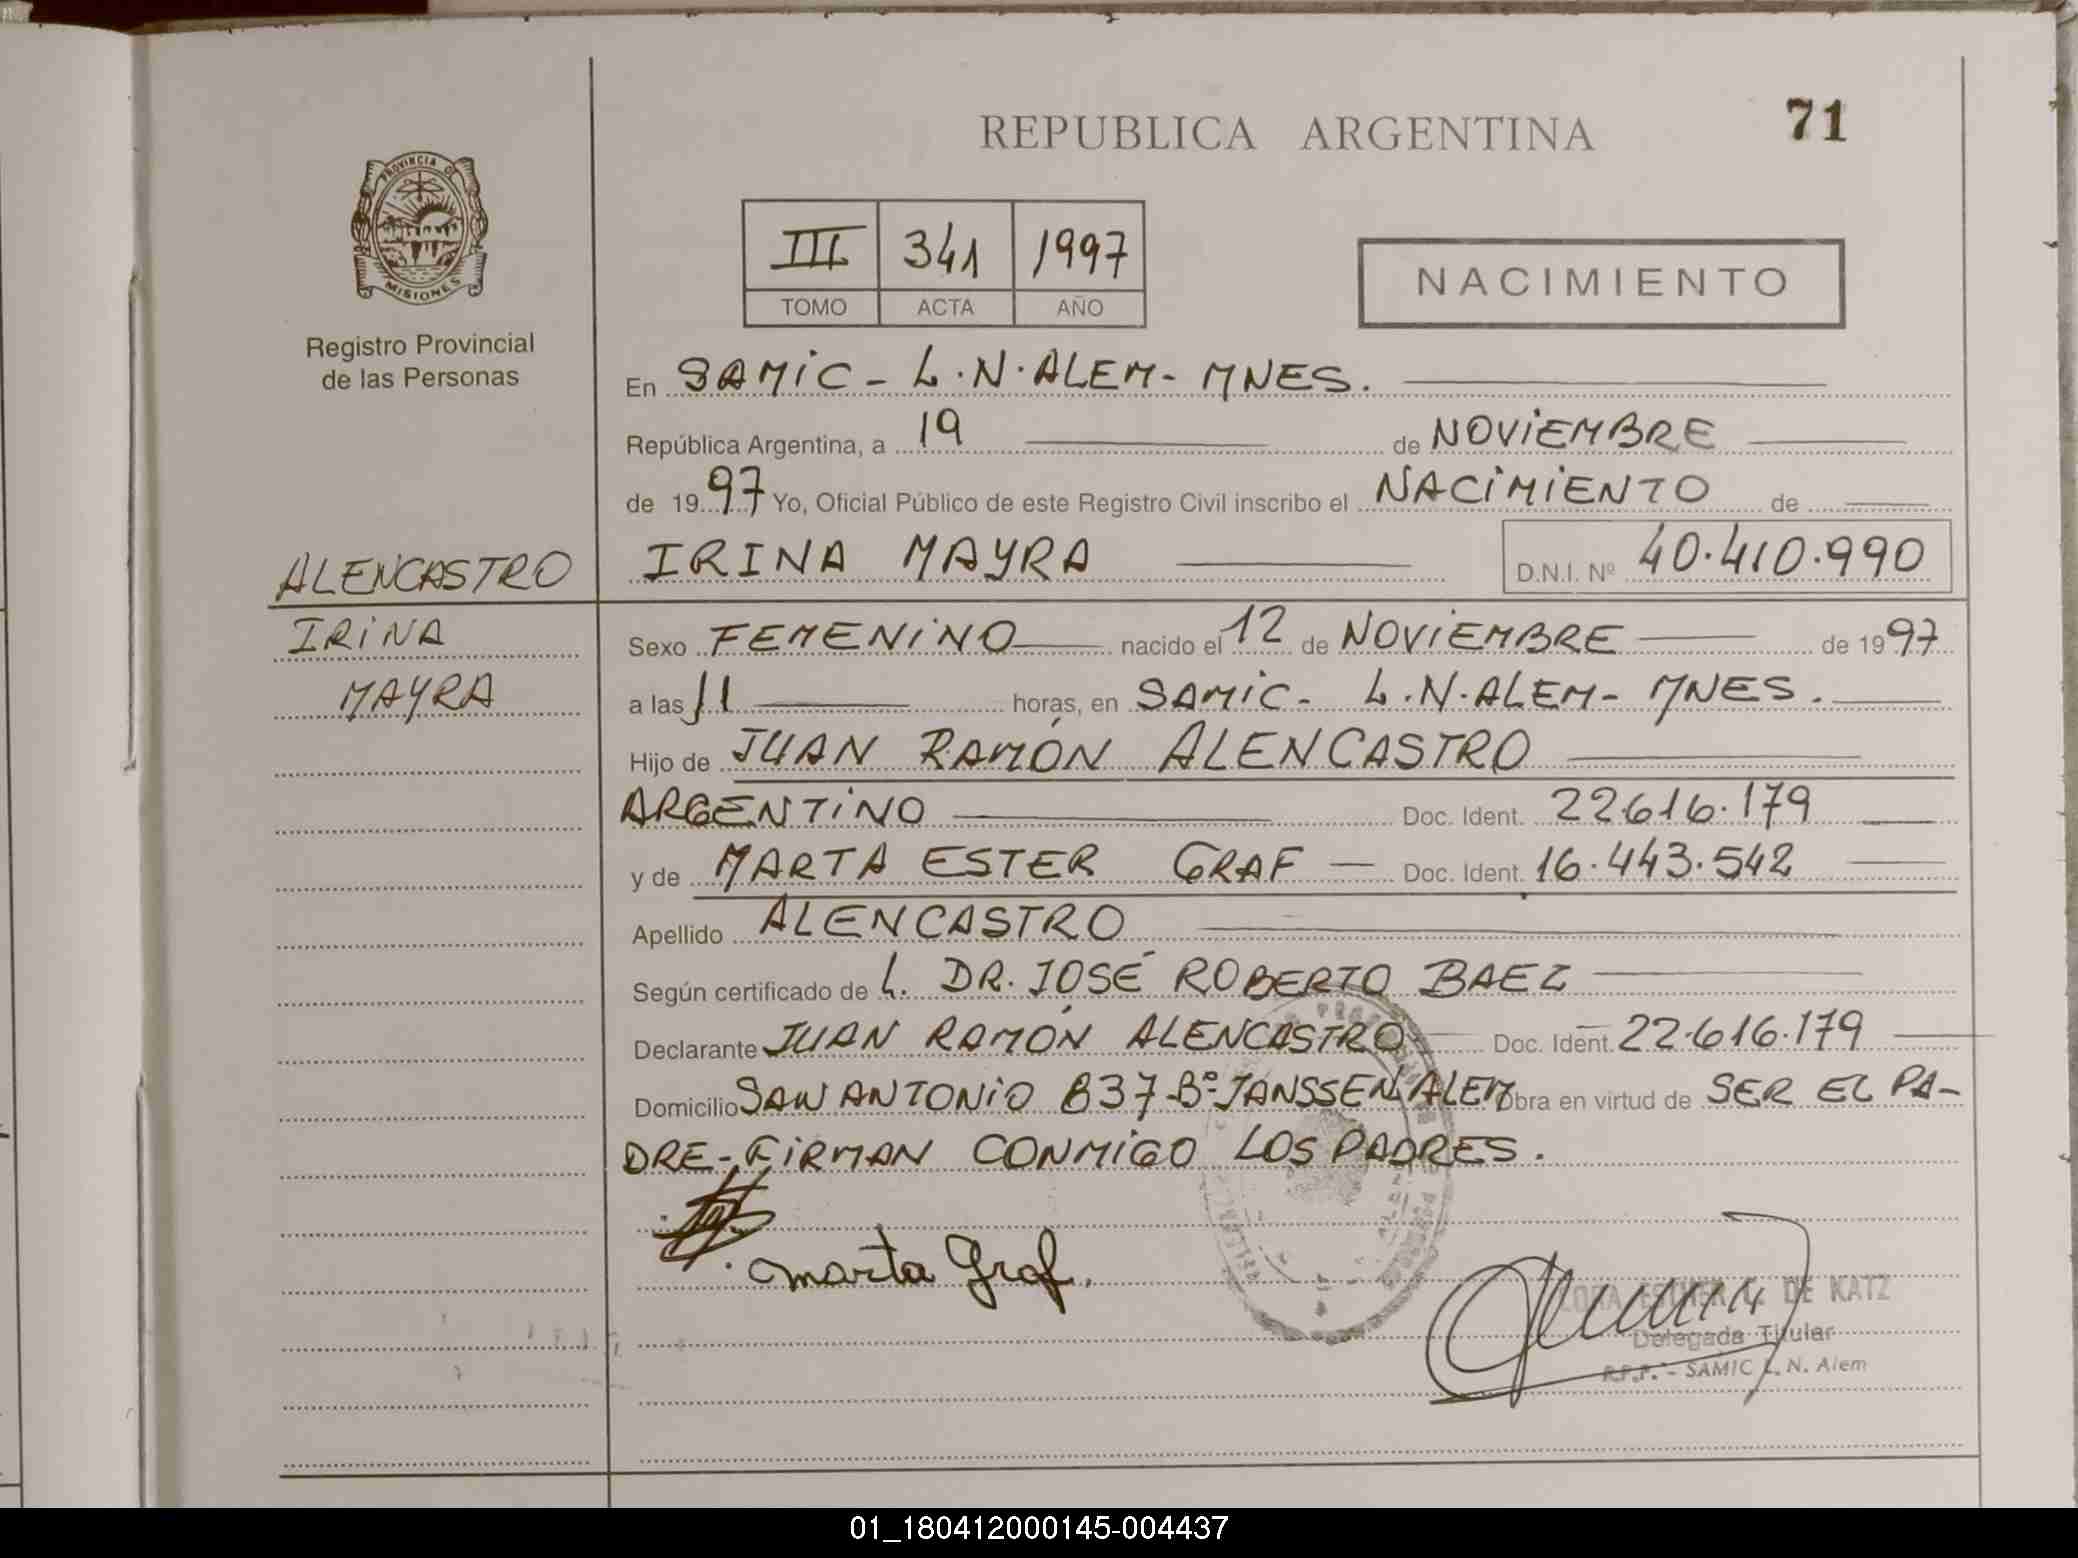 REPUBLICA ARGENTINA
71
PROVINCIA DE
MISIONES
Registro Provincial
de las Personas
III 341 1997
TOMO ACTA AÑO
NACIMIENTO
En SAMIC - L.N. ALEM - MNES.
República Argentina, a 19 de NOVIEMBRE
de 1997 Yo, Oficial Público de este Registro Civil inscribo el NACIMIENTO de
ALENCASTRO
IRINA
MAYRA
IRINA MAYRA D.N.I. Nº 40.410.990
Sexo FEMENINO nacido el 12 de NOVIEMBRE de 1997
a las 11 horas, en SAMIC - L.N. ALEM - MNES.
Hijo de JUAN RAMÓN ALENCASTRO
ARGENTINO Doc. Ident. 22.616.179
y de MARTA ESTER GRAF Doc. Ident. 16.443.542
Apellido ALENCASTRO
Según certificado de L. DR. JOSÉ ROBERTO BAEZ
Declarante JUAN RAMÓN ALENCASTRO Doc. Ident. 22.616.179
Domicilio SAN ANTONIO 837 - Bº JANSSEN, ALEM Obra en virtud de SER EL PA-
DRE - FIRMAN CONMIGO LOS PADRES.
Marta Graf.
DE KATZ
Delegada Titular
R.P.P. - SAMIC L. N. Alem
01_180412000145-004437